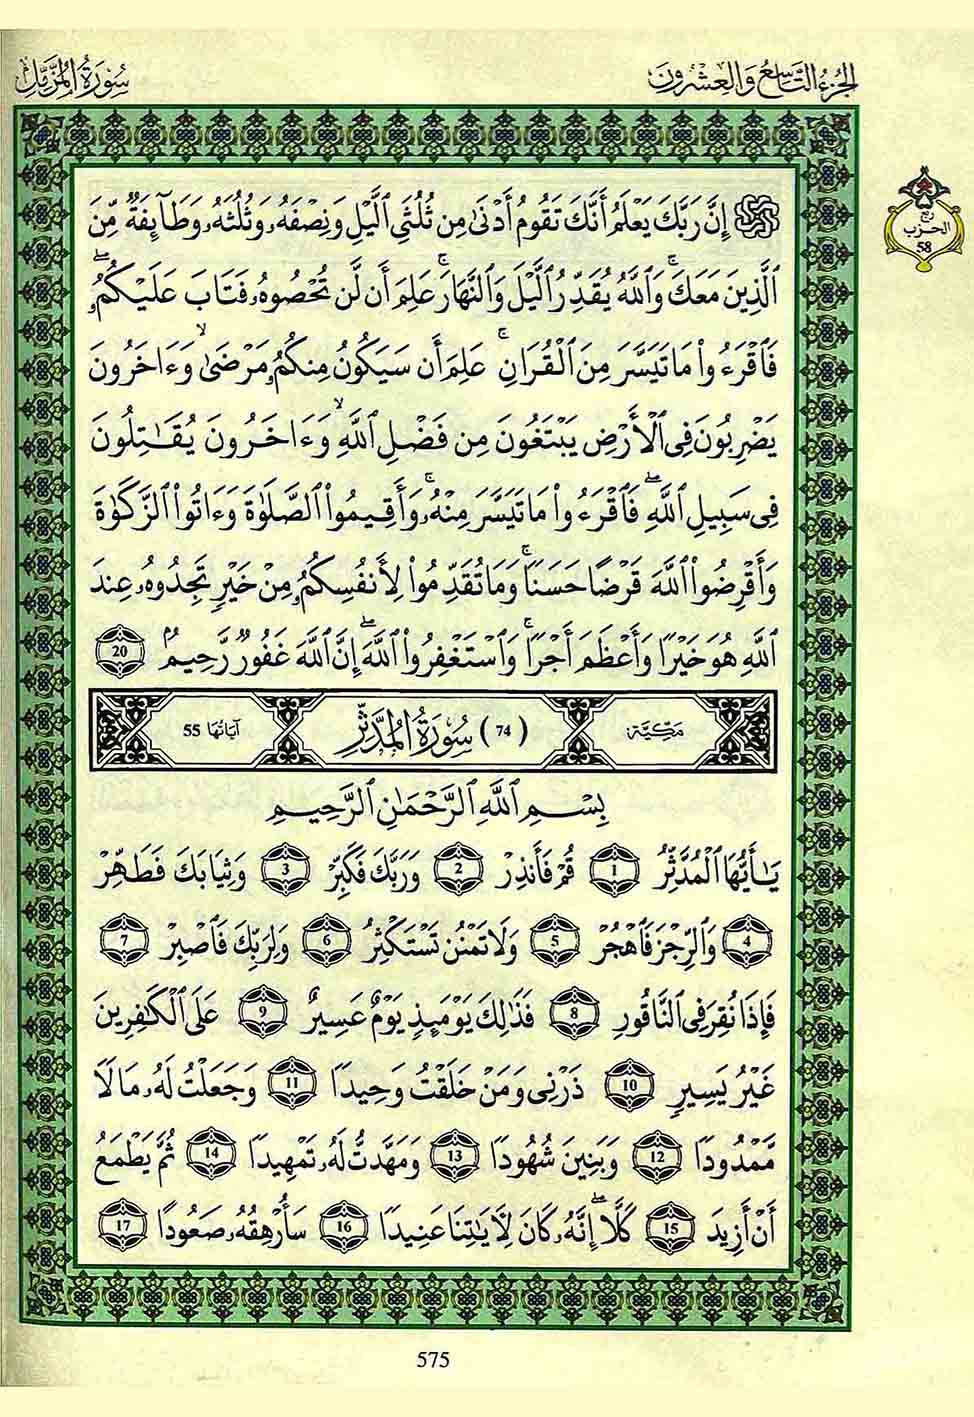 الجُزءُ التَّاسِعُ وَالعِشْرُونَ
سُورَةُ المُزَّمِّلِ
رُبع
الحِزْب
58
۞ إِنَّ رَبَّكَ يَعْلَمُ أَنَّكَ تَقُومُ أَدْنَىٰ مِن ثُلُثَيِ ٱلَّيْلِ وَنِصْفَهُۥ وَثُلُثَهُۥ وَطَآئِفَةٌ مِّنَ
ٱلَّذِينَ مَعَكَۚ وَٱللَّهُ يُقَدِّرُ ٱلَّيْلَ وَٱلنَّهَارَۚ عَلِمَ أَن لَّن تُحْصُوهُۥ فَتَابَ عَلَيْكُمُۥۖ
فَٱقْرَءُوا۟ مَا تَيَسَّرَ مِنَ ٱلْقُرَانِۚ عَلِمَ أَن سَيَكُونُ مِنكُمُۥ مَرْضَىٰۙ وَءَاخَرُونَ
يَضْرِبُونَ فِى ٱلْأَرْضِ يَبْتَغُونَ مِن فَضْلِ ٱللَّهِۙ وَءَاخَرُونَ يُقَـٰتِلُونَ
فِى سَبِيلِ ٱللَّهِۖ فَٱقْرَءُوا۟ مَا تَيَسَّرَ مِنْهُۥۚ وَأَقِيمُوا۟ ٱلصَّلَوٰةَ وَءَاتُوا۟ ٱلزَّكَوٰةَ
وَأَقْرِضُوا۟ ٱللَّهَ قَرْضًا حَسَنًاۚ وَمَا تُقَدِّمُوا۟ لِأَنفُسِكُمُۥ مِنْ خَيْرٍ تَجِدُوهُۥ عِندَ
ٱللَّهِ هُوَ خَيْرًا وَأَعْظَمَ أَجْرًاۚ وَٱسْتَغْفِرُوا۟ ٱللَّهَۖ إِنَّ ٱللَّهَ غَفُورٌ رَّحِيمٌۢ 20
مَكِّيَّة (74) سُورَةُ المُدَّثِّر آيَاتُهَا 55
بِسْمِ ٱللَّهِ ٱلرَّحْمَـٰنِ ٱلرَّحِيمِ
يَـٰأَيُّهَا ٱلْمُدَّثِّرُ 1 قُمْ فَأَنذِرْ 2 وَرَبَّكَ فَكَبِّرْ 3 وَثِيَابَكَ فَطَهِّرْ
4 وَٱلرِّجْزَ فَٱهْجُرْ 5 وَلَا تَمْنُن تَسْتَكْثِرُ 6 وَلِرَبِّكَ فَٱصْبِرْ 7
فَإِذَا نُقِرَ فِى ٱلنَّاقُورِ 8 فَذَٰلِكَ يَوْمَئِذٍ يَوْمٌ عَسِيرٌ 9 عَلَى ٱلْكَـٰفِرِينَ
غَيْرُ يَسِيرٍ 10 ذَرْنِى وَمَنْ خَلَقْتُ وَحِيدًا 11 وَجَعَلْتُ لَهُۥ مَالًا
مَّمْدُودًا 12 وَبَنِينَ شُهُودًا 13 وَمَهَّدتُّ لَهُۥ تَمْهِيدًا 14 ثُمَّ يَطْمَعُ
أَنْ أَزِيدَ 15 كَلَّاۖ إِنَّهُۥ كَانَ لِأَيَـٰتِنَا عَنِيدًا 16 سَأُرْهِقُهُۥ صَعُودًا 17
575